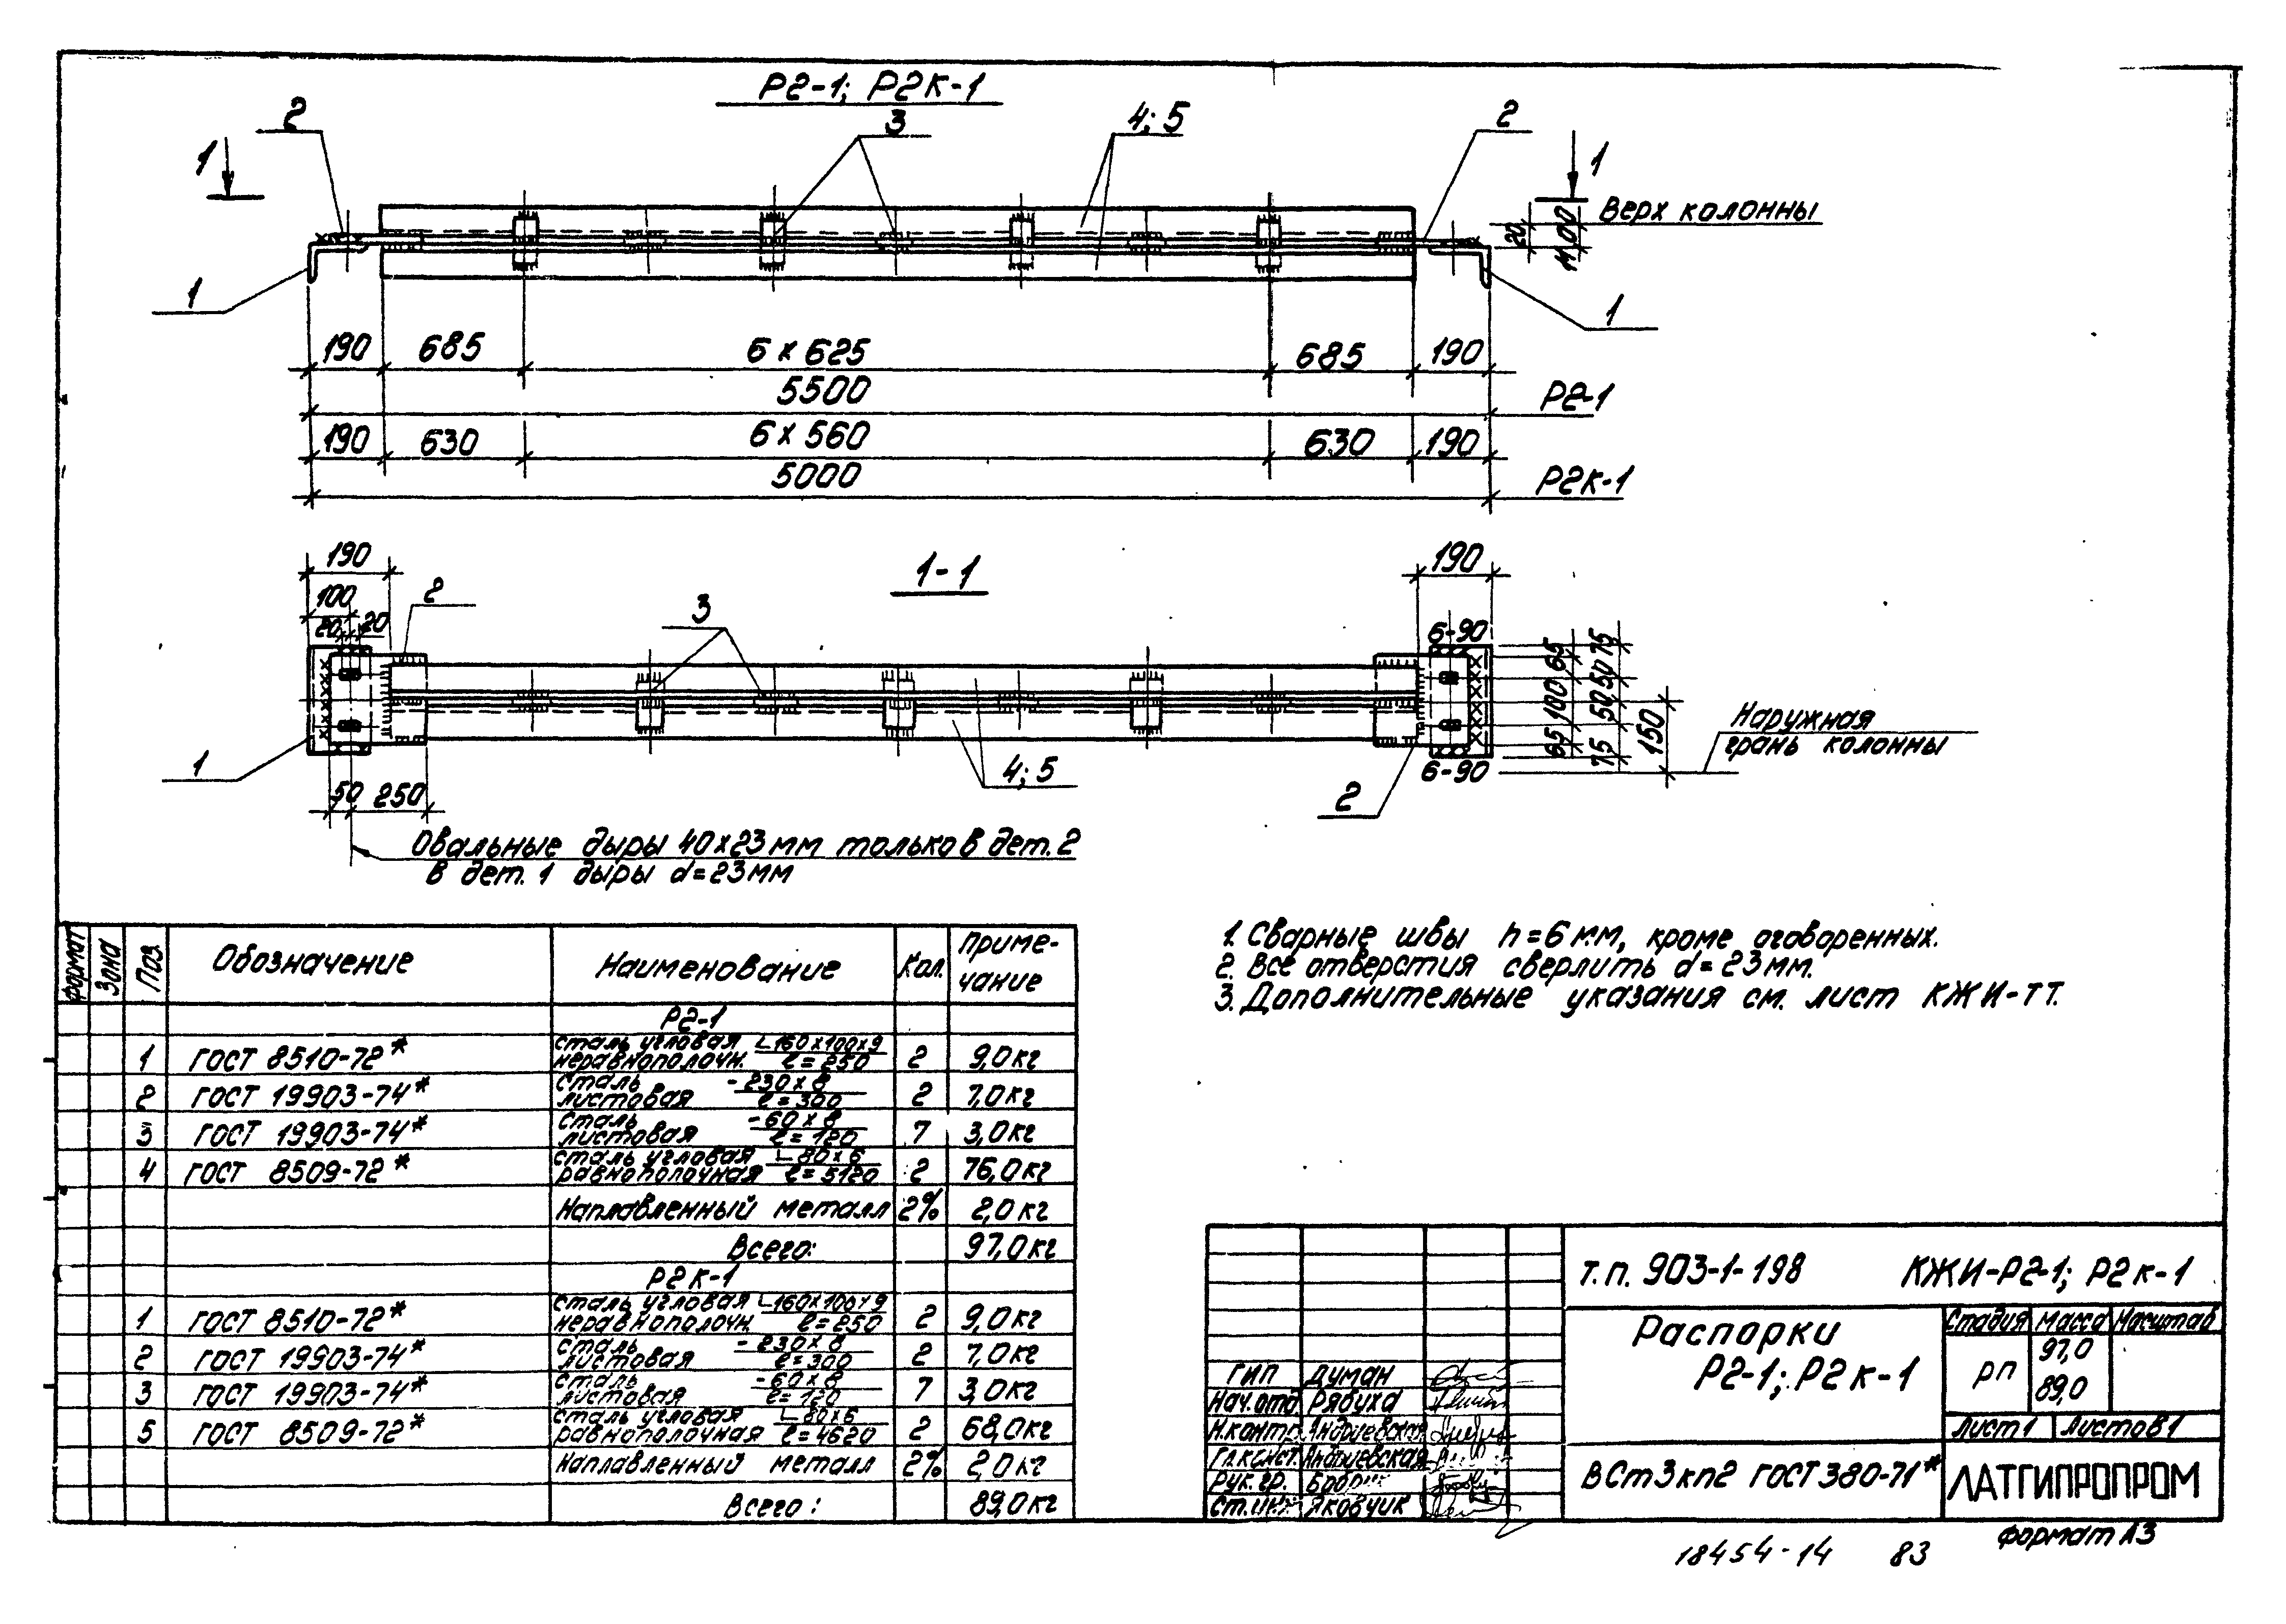 Р2-1; Р2К-1
2
3
4; 5
2
1
1
Верх колонны
20
100
1
1
190 685 6 х 625 685 190
5500
Р2-1
190 630 6 х 560 630 190
5000
Р2К-1
1-1
190
100
20 20
2
3
190
6-90
65 100 65
75 50 50 75
150
Наружная
грань колонны
1
50 250
4; 5
2
6-90
Овальные дыры 40х23 мм только в дет. 2
в дет. 1 дыры d=23мм
1. Сварные швы h=6 мм, кроме оговоренных.
2. Все отверстия сверлить d=23мм.
3. Дополнительные указания см. лист КЖИ-ТТ.
Формат Зона Поз. Обозначение Наименование Кол. Примечание
Р2-1
1 ГОСТ 8510-72* сталь угловая неравнополочн. ∟160х100х9 ℓ=250 2 9,0кг
2 ГОСТ 19903-74* сталь листовая -230х8 ℓ=300 2 7,0кг
3 ГОСТ 19903-74* сталь листовая -60х8 ℓ=120 7 3,0кг
4 ГОСТ 8509-72* сталь угловая равнополочная ∟80х6 ℓ=5120 2 76,0кг
Наплавленный металл 2% 2,0кг
Всего: 97,0кг
Р2К-1
1 ГОСТ 8510-72* сталь угловая неравнополочн. ∟160х100х9 ℓ=250 2 9,0кг
2 ГОСТ 19903-74* сталь листовая -230х8 ℓ=300 2 7,0кг
3 ГОСТ 19903-74* сталь листовая -60х8 ℓ=120 7 3,0кг
5 ГОСТ 8509-72* сталь угловая равнополочная ∟80х6 ℓ=4620 2 68,0кг
Наплавленный металл 2% 2,0кг
Всего: 89,0кг
Т.П. 903-1-198 КЖИ-Р2-1; Р2К-1
Распорки
Р2-1; Р2К-1
Стадия Масса Масштаб
РП 97,0
89,0
Лист 1 Листов 1
ГИП Думан
Нач.отд Рябуха
Н.контр. Андриевская
Гл.констр. Андриевская
Рук.гр.
Ст.инж. Яковчик
ВСт3кп2 ГОСТ 380-71*
ЛАТГИПРОПРОМ
Формат А3
18454-14 83